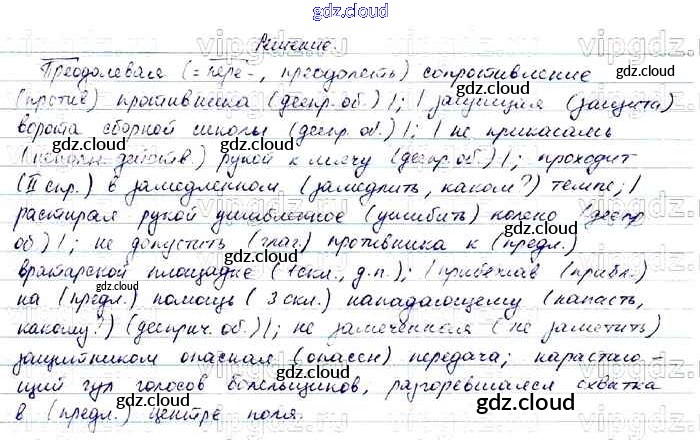 gdz.cloud
Решение.
Преодолевая (= пере-, преодолеть) сопротивление
(против) противника (деепр. об.) |; | защищая (защита)
ворота сборной школы (деепр. об.) |; | не прикасаясь
действ.) рукой к мячу (деепр. об.) |; проходит
(II спр.) в замедленном (замедлить, каком?) темпе; |
растирая рукой ушибленное (ушибить) колено (деепр.
об.) |; не допустить (глаг.) противника к (предл.)
вратарской площадке (1 скл., д.п.); | прибежав (прибл.)
на (предл.) помощь (3 скл.) нападающему (напасть,
какому?) (дееприч. об.) |; не замеченная (не заметить)
защитником опасная (опасен) передача; нарастаю-
щий гул голосов болельщиков, разгоревшаяся схватка
в (предл.) центре поля.
gdz.cloud